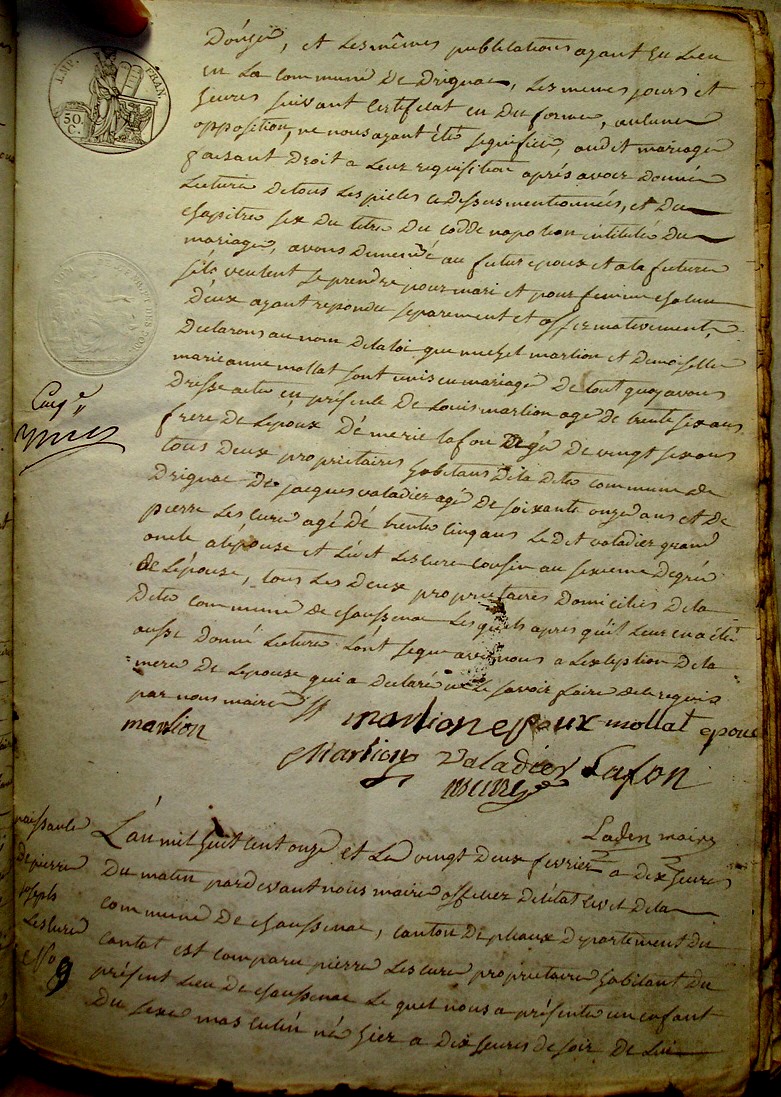 IMP. FRAN.
50 C.
D'onze, et les mêmes publications ayant eu lieu
en la commune de Drignac, les memes jours et
heures suivant certificat en du forme, aucune
opposition, ne nous ayant été signifiée, audit mariage
faisant Droit a leur requisition aprés avoir donné
Lecture de tous les pieces cy dessus mentionnées, et du
chapitre six du titre du codde napoleon intitule du
mariage, avons demendé au futur epoux et a la future
s'ils veulent se prendre pour mari et pour femme chacun
D'eux ayant repondu separement et affirmativement,
Declarons au nom de la loi que michel marlion et demoiselle
marieanne mollat sont unis en mariage De tout quoy avons
Dressé acte en présence de Louis marlion agé de trente six ans
frere de L'epoux De meric lafon agé de vingt six ans
tous deux proprietaires habitans de la dite commune de
Drignac De jacques valadier agé de soixante onze ans et de
pierre Lescure agé dé trente cinq ans le dit valadier grand
oncle a l'épouse et ledit Lescure cousin au sixieme degré
de L'épouse, tous les deux proprietaires Domiciliés de la
Dite commune de chaussenac lesquels apres qu'il leur en a été
aussi donné Lecture l'ont signe avec nous a l'exception de la
mere de L'epouse qui a declaré ne le savoir faire de ce requise
par nous maire
marlion marlion epoux mollat epouse
Marlion Valadier Lafon
Laden maire
naissance
De pierre
joseph
Lescure
N° 9
L'an mil huit cent onze et le vingt deux fevrier a dix heures
Du matin pardevant nous maire officier de l'état civil de la
commune De chaussenac, canton De pleaux Departement du
cantal est comparu pierre Lescure propriétaire habitant du
présent lieu De chaussenac le quel nous a présenté un enfant
Du sexe masculin né hier a dix heures de soir De lui